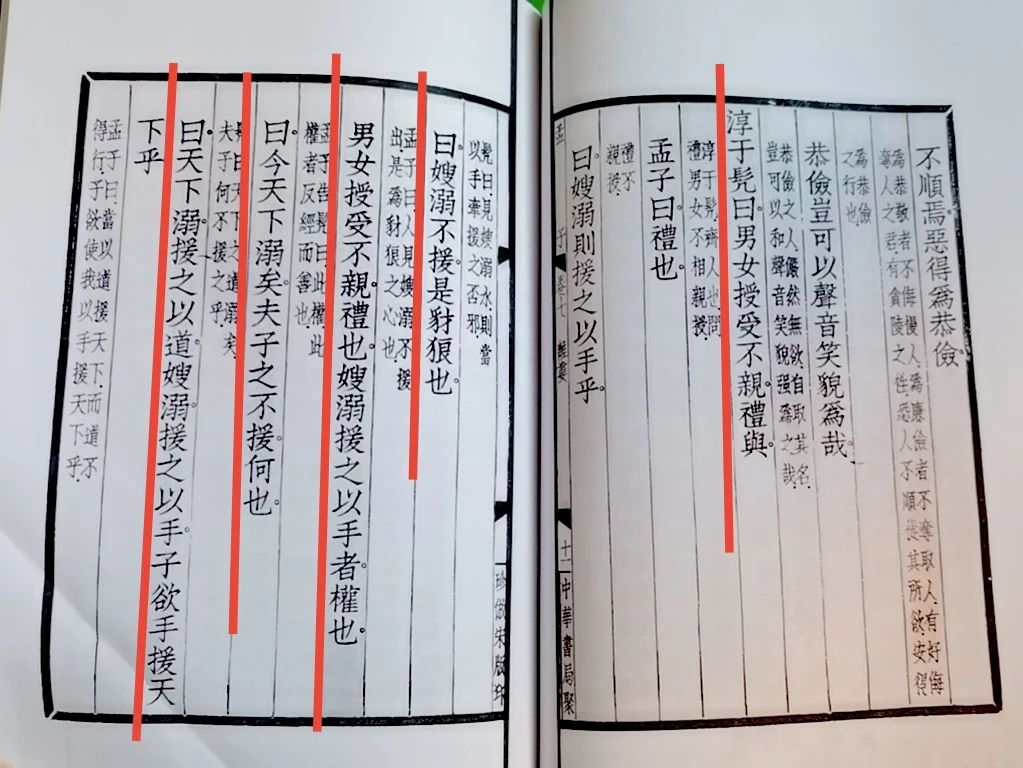 不順焉惡得爲恭儉。
爲恭敬者不侮慢人爲廉儉者不奪取人有好侮
奪人之君有貪陵之性恐人不順從其所欲安得
爲恭儉
之行也
恭儉豈可以聲音笑貌爲哉。
恭儉之人儼然無欲自取其名
豈可以和聲音笑貌強爲之哉
淳于髡曰男女授受不親。禮與。
淳于髡齊人也問
禮男女不相親授
孟子曰禮也。
禮不
親授
曰嫂溺則援之以手乎。
孟 子 卷七 離婁 十一 中華書局聚
珍倣宋版印
髡曰見嫂溺水則當
以手牽援之否邪
曰。嫂溺不援。是豺狼也。
孟子曰人見嫂溺不援
出是爲豺狼之心也
男女授受不親。禮也。嫂溺援之以手者。權也。
孟子告髡曰此權此
權者反經而善也
曰。今天下溺矣。夫子之不援。何也。
髡曰天下之道溺矣
夫子何不援之乎
曰。天下溺。援之以道。嫂溺。援之以手。子欲手援天
下乎
孟子曰當以道援天下而道不
得行子欲使我以手援天下乎